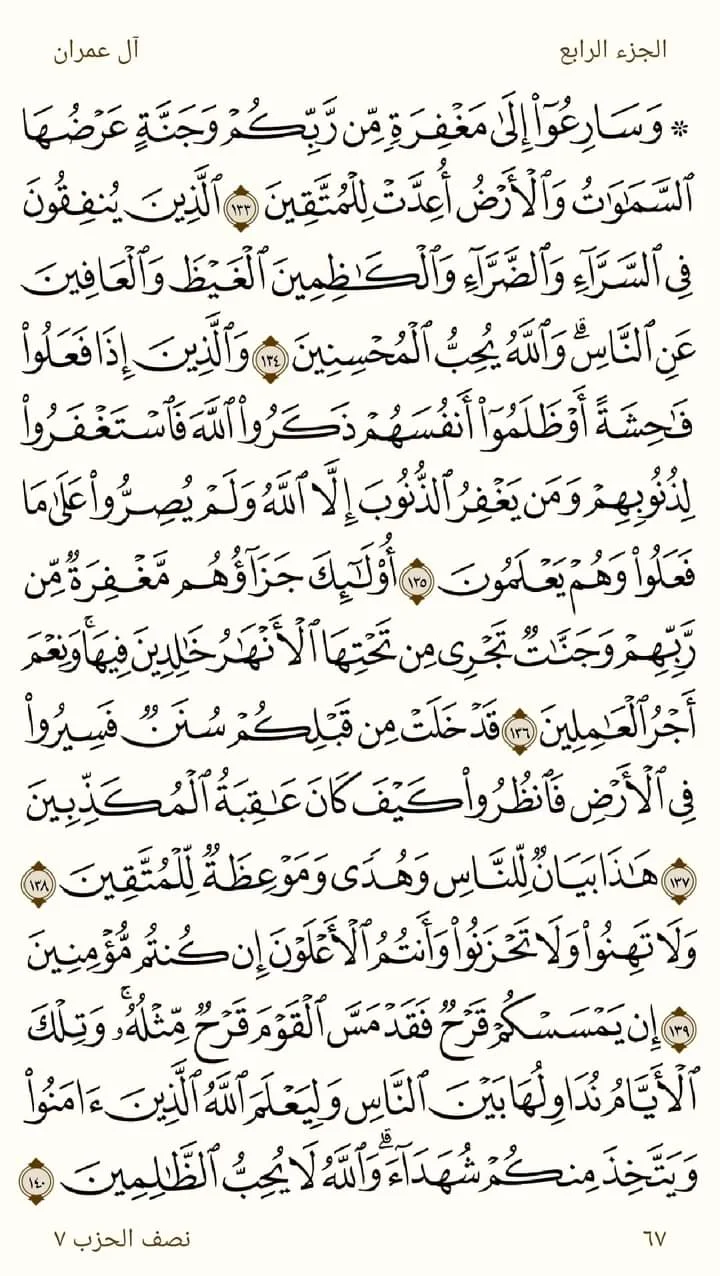 الجزء الرابع
آل عمران
۞ وَسَارِعُوٓا۟ إِلَىٰ مَغْفِرَةٍ مِّن رَّبِّكُمْ وَجَنَّةٍ عَرْضُهَا
ٱلسَّمَـٰوَٰتُ وَٱلْأَرْضُ أُعِدَّتْ لِلْمُتَّقِينَ ١٣٣ ٱلَّذِينَ يُنفِقُونَ
فِى ٱلسَّرَّآءِ وَٱلضَّرَّآءِ وَٱلْكَـٰظِمِينَ ٱلْغَيْظَ وَٱلْعَافِينَ
عَنِ ٱلنَّاسِ ۗ وَٱللَّهُ يُحِبُّ ٱلْمُحْسِنِينَ ١٣٤ وَٱلَّذِينَ إِذَا فَعَلُوا۟
فَـٰحِشَةً أَوْ ظَلَمُوٓا۟ أَنفُسَهُمْ ذَكَرُوا۟ ٱللَّهَ فَٱسْتَغْفَرُوا۟
لِذُنُوبِهِمْ وَمَن يَغْفِرُ ٱلذُّنُوبَ إِلَّا ٱللَّهُ وَلَمْ يُصِرُّوا۟ عَلَىٰ مَا
فَعَلُوا۟ وَهُمْ يَعْلَمُونَ ١٣٥ أُو۟لَـٰٓئِكَ جَزَآؤُهُم مَّغْفِرَةٌ مِّن
رَّبِّهِمْ وَجَنَّـٰتٌ تَجْرِى مِن تَحْتِهَا ٱلْأَنْهَـٰرُ خَـٰلِدِينَ فِيهَا ۚ وَنِعْمَ
أَجْرُ ٱلْعَـٰمِلِينَ ١٣٦ قَدْ خَلَتْ مِن قَبْلِكُمْ سُنَنٌ فَسِيرُوا۟
فِى ٱلْأَرْضِ فَٱنظُرُوا۟ كَيْفَ كَانَ عَـٰقِبَةُ ٱلْمُكَذِّبِينَ
١٣٧ هَـٰذَا بَيَانٌ لِّلنَّاسِ وَهُدًى وَمَوْعِظَةٌ لِّلْمُتَّقِينَ ١٣٨
وَلَا تَهِنُوا۟ وَلَا تَحْزَنُوا۟ وَأَنتُمُ ٱلْأَعْلَوْنَ إِن كُنتُم مُّؤْمِنِينَ
١٣٩ إِن يَمْسَسْكُمْ قَرْحٌ فَقَدْ مَسَّ ٱلْقَوْمَ قَرْحٌ مِّثْلُهُۥ ۚ وَتِلْكَ
ٱلْأَيَّامُ نُدَاوِلُهَا بَيْنَ ٱلنَّاسِ وَلِيَعْلَمَ ٱللَّهُ ٱلَّذِينَ ءَامَنُوا۟
وَيَتَّخِذَ مِنكُمْ شُهَدَآءَ ۗ وَٱللَّهُ لَا يُحِبُّ ٱلظَّـٰلِمِينَ ١٤٠
٦٧
نصف الحزب ٧